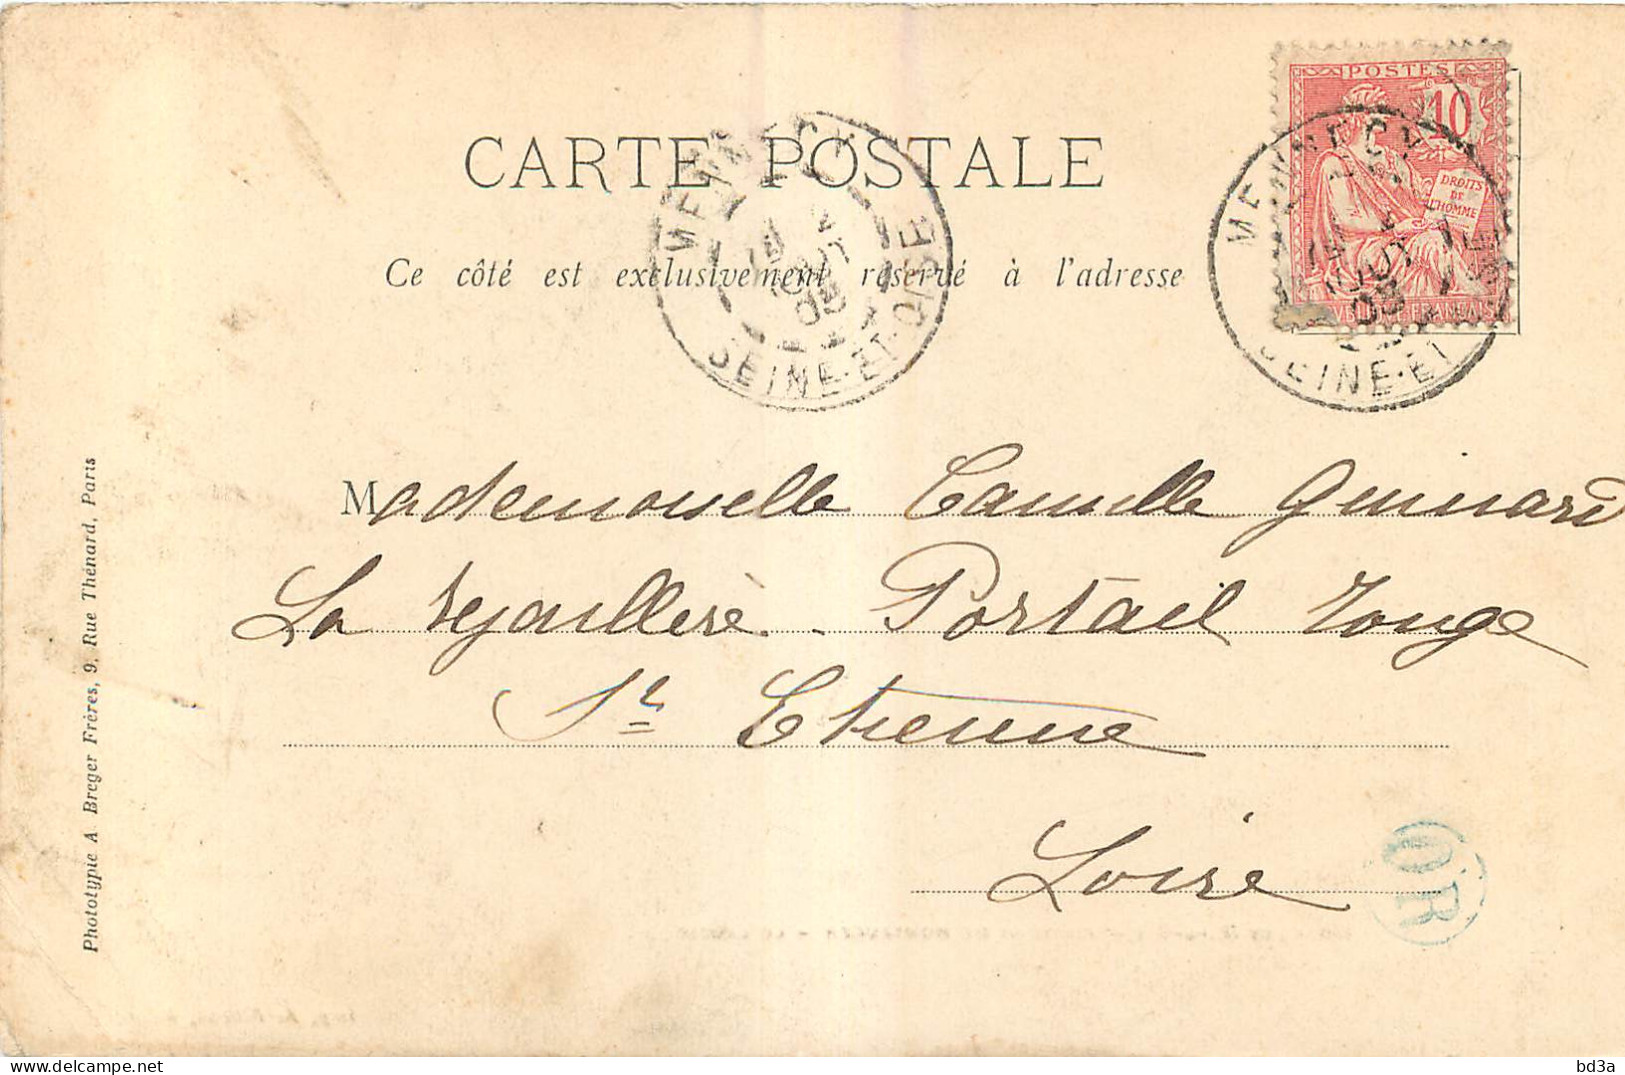 POSTES
10
DROITS
DE
L'HOMME
CARTE POSTALE
MENNECY
SEINE-ET-OISE
AOUT
03
MENNECY
SEINE-ET
AOUT
03
Ce côté est exclusivement réservé à l'adresse
Mademoiselle Camille
La Portail rouge
St Etienne
Loire
OR
Phototypie A. Breger Frères, 9, Rue Thénard, Paris
bd3a